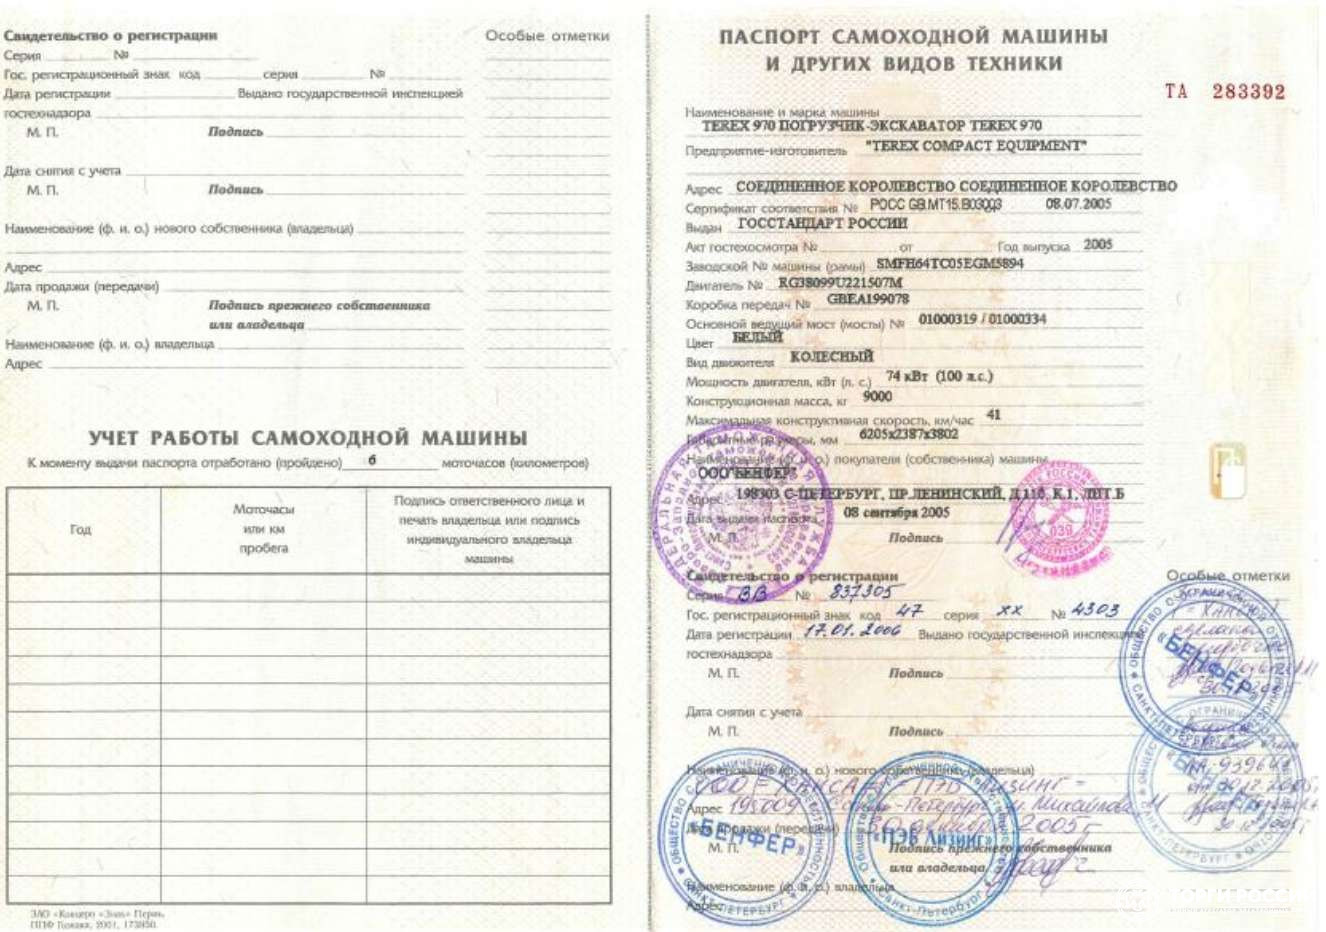 Свидетельство о регистрации
Особые отметки
Серия № 
Гос. регистрационный знак код серия №
Дата регистрации Выдано государственной инспекцией
гостехнадзора
М. П. Подпись
Дата снятия с учета
М. П. Подпись
Наименование (ф. и. о.) нового собственника (владельца)
Адрес
Дата продажи (передачи)
М. П. Подпись прежнего собственника
или владельца
Наименование (ф. и. о.) владельца
Адрес
УЧЕТ РАБОТЫ САМОХОДНОЙ МАШИНЫ
К моменту выдачи паспорта отработано (пройдено) 6 моточасов (километров)
Год
Моточасы
или км
пробега
Подпись ответственного лица и
печать владельца или подпись
индивидуального владельца
машины
ЗАО «Концерн «Знак» Пермь,
2001, 173850.
ПАСПОРТ САМОХОДНОЙ МАШИНЫ
И ДРУГИХ ВИДОВ ТЕХНИКИ
ТА 283392
Наименование и марка машины
TEREX 970 ПОГРУЗЧИК-ЭКСКАВАТОР TEREX 970
Предприятие-изготовитель "TEREX COMPACT EQUIPMENT"
Адрес СОЕДИНЕННОЕ КОРОЛЕВСТВО СОЕДИНЕННОЕ КОРОЛЕВСТВО
Сертификат соответствия № РОСС GB.МТ15.В03003 от 08.07.2005
Выдан ГОССТАНДАРТ РОССИИ
Акт гостехосмотра № от Год выпуска 2005
Заводской № машины (рамы) SMFH64TC05EGM5894
Двигатель № RG38099U221507M
Коробка передач № GBEA199078
Основной ведущий мост (мосты) № 01000319 / 01000334
Цвет БЕЛЫЙ
Вид движителя КОЛЕСНЫЙ
Мощность двигателя, кВт (л. с.) 74 кВт (100 л.с.)
Конструкционная масса, кг 9000
Максимальная конструктивная скорость, км/час 41
Габаритные размеры, мм 6205x2387x3802
Наименование (ф. и. о.) покупателя (собственника) машины
ООО"БЕНФЕР"
Адрес 198303 С-ПЕТЕРБУРГ, ПР.ЛЕНИНСКИЙ, Д.116, К.1, ЛИТ.Б
Дата выдачи паспорта 08 сентября 2005
М. П. Подпись
Свидетельство о регистрации
Особые отметки
Серия ВВ № 837305
Гос. регистрационный знак код 47 серия ХХ № 4303
Дата регистрации 17.01.2006 Выдано государственной инспекцией
гостехнадзора
М. П. Подпись
Дата снятия с учета
М. П. Подпись
Наименование (ф. и. о.) нового собственника (владельца)
Адрес 195009 Санкт-Петербург ул. Михайлова 11
Дата продажи (передачи) 30 декабря 2005 г.
М. П. Подпись прежнего собственника
или владельца
Наименование (ф. и. о.) владельца
Адрес
«БЕНФЕР»
«ПЭБ Лизинг»
«БЕНФЕР»